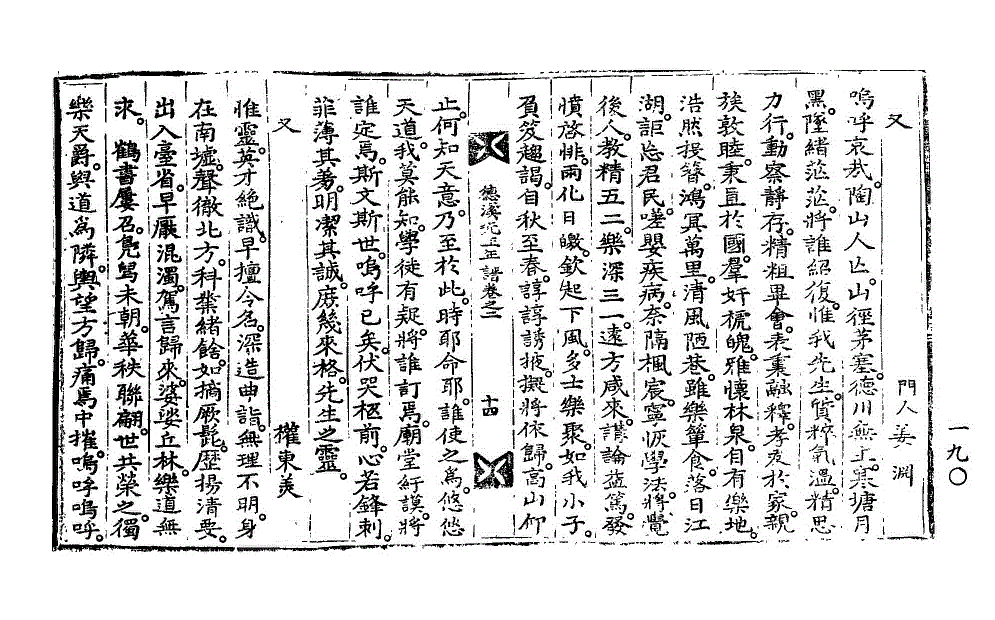 一九〇
又
門人姜淵
嗚呼哀哉陶山人亡山徑茅塞德川無主寒塘月
黑墜緖茫茫將誰紹復惟我先生質粹氣溫精思
力行動察靜存精粗畢會表裏融釋孝友於家親
族敦睦秉直於國羣奸褫魄雅懷林泉自有樂地
浩然投簪鴻冥萬里淸風陋巷雖樂簞食落日江
湖詎忘君民嗟嬰疾病奈隔楓宸寧恢學法將覺
後人敎精五二樂深三一遠方咸來講論益篤發
憤啓悱雨化日皦欽起下風多士樂聚如我小子
負笈趨謁自秋至春諄諄誘掖擬將依歸高山仰
德溪先正譜卷之二
十四
止何知天意乃至於此時耶命耶誰使之爲悠悠
天道我莫能知學徒有疑將誰訂焉廟堂訏謨將
誰定焉斯文斯世嗚呼已矣伏哭柩前心若鋒刺
菲薄其芻明潔其誠庶幾來格先生之靈
又
權東美
惟靈英才絶識早擅令名深造曲詣無理不明身
在南墟聲徹北方科業緖餘如摘厥髭歷揚淸要
出入臺省早厭混濁駕言歸來婆娑丘林樂道無
求鶴書屢召鳧舃未朝華秩聯翩世共榮之獨
樂天爵與道爲隣輿望方歸痛焉中摧嗚呼嗚呼